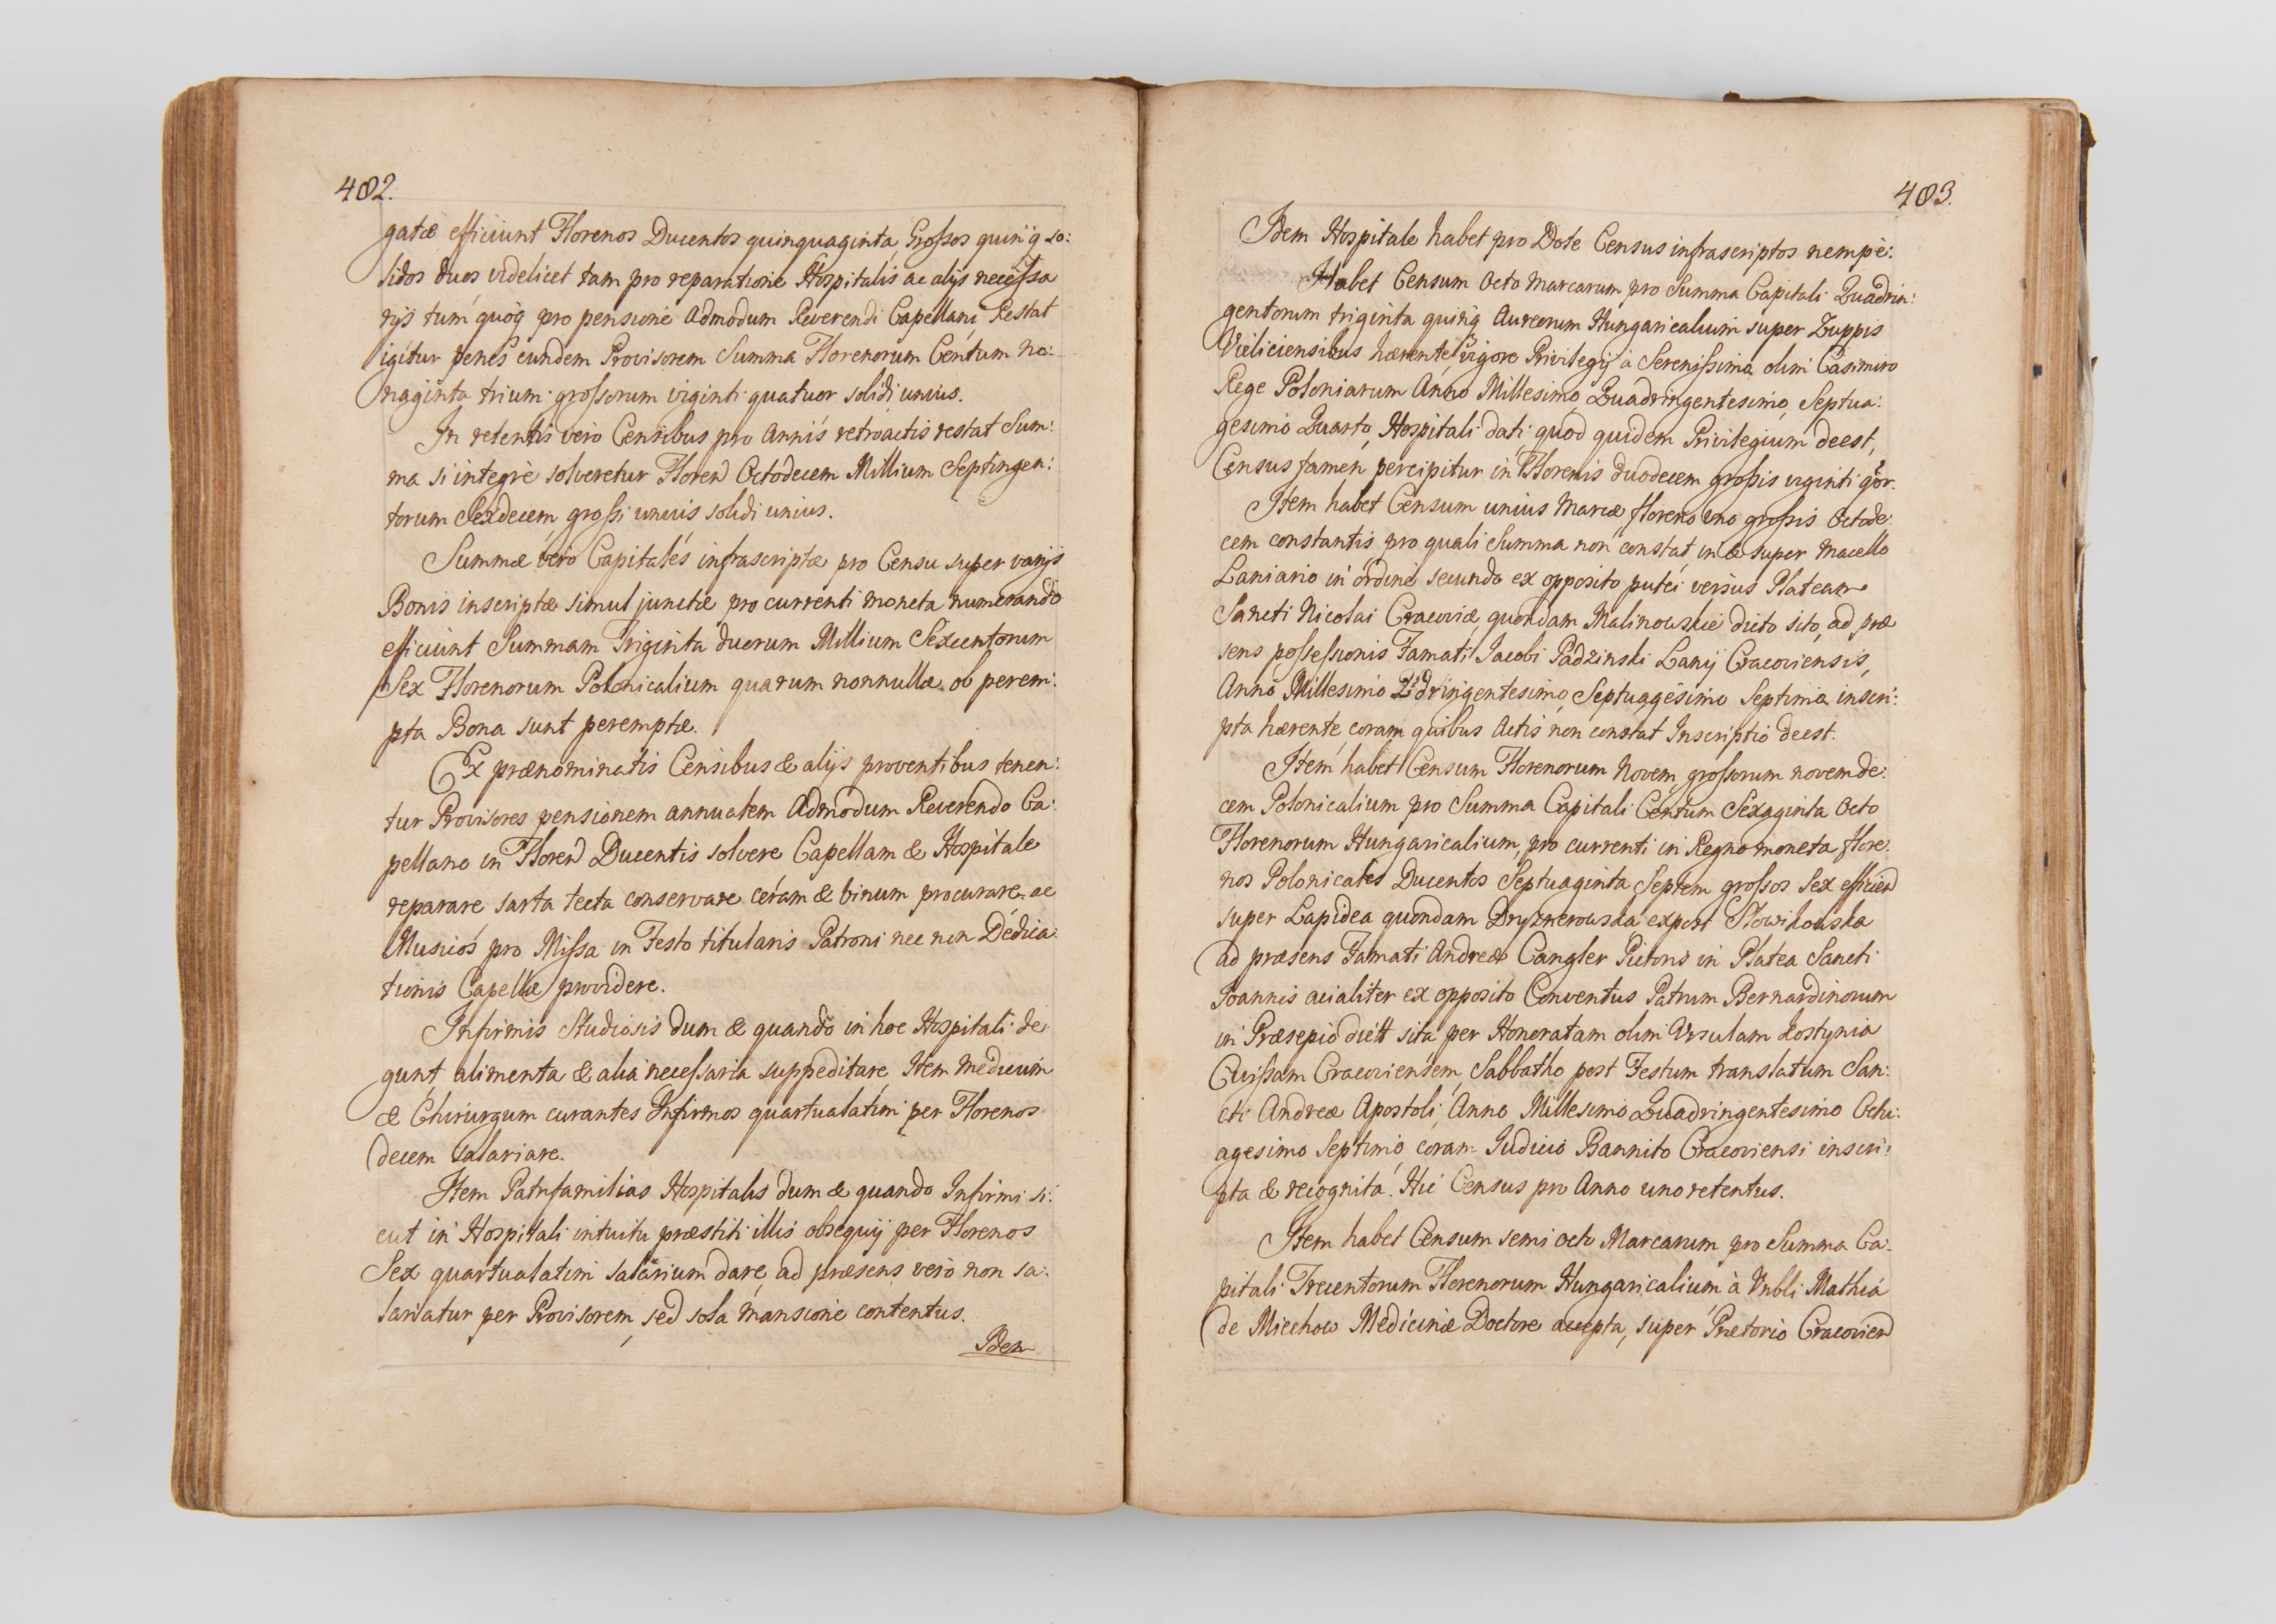 482.
gatæ efficiunt Florenos Ducentos quinquaginta, Grossos quinq̃ so:
lidos duos videlicet tam pro reparatione Hospitalis ac alijs necessa
rijs tum quoq̃ pro pensione Admodum Reverendi Capellani Restat
igitur penes eundem Provisorem Summa Florenorum Centum no:
naginta trium grossorum viginti quatuor solidi unius.
In retentis vero Censibus pro Annis retroactis restat Sum:
ma si integrè solveretur Floren Octodecem Millium Septingen:
torum Sexdecem grossi unius solidi unius.
Summæ vero Capitales infrascriptæ pro Censu super varijs
Bonis inscriptæ simul junctæ pro currenti moneta numerando
efficiunt Summam Triginta duorum Millium Sexcentorum
Sex Florenorum Polonicalium quarum nonnullæ ob perem:
pta Bona sunt peremptæ.
Ex prænominatis Censibus & alijs proventibus tenen:
tur Provisores pensionem annualem Admodum Reverendo Ca:
pellano in Floren Ducentis solvere Capellam & Hospitale
reparare sarta tecta conservare ceram & vinum procurare ac
Musicos pro Missa in Festo titularis Patroni nec non Dedica:
tionis Capellæ providere.
Infirmis Studiosis dum & quando in hoc Hospitali de
gunt alimenta & alia necessaria suppeditare, Item Medicum
& Chirurgum curantes Infirmos quartualatim per Florenos
decem salariare.
Item Patrifamilias Hospitalis dum & quando Infirmi si:
cut in Hospitali intuitu præstiti illis obsequij per Florenos
Sex quartualatim salarium dare, ad præsens verò non sa:
lariatur per Provisorem, sed sola mansione contentus.
Idem
483.
Idem Hospitale habet pro Dote Census infrascriptos nempè:
Habet Censum Octo Marcarum pro Summa Capitali Quadrin:
gentorum triginta quinq̃ Aureorum Hungaricalium super Zuppis
Vieliciensibus hærente vigore Privilegij à Serenissimo olim Casimiro
Rege Poloniarum Anno Millesimo Quadringentesimo, Septua:
gesimo Quarto, Hospitali dati, quod quidem Privilegium deest,
Census tamen percipitur in Florenis duodecem grossis viginti qr.
Item habet Censum unius Marcæ floreno uno grossis Octode:
cem constantis pro quali Summa non constat, in & super Macello
Laniario in ordine secundo ex opposito putei versus Plateam
Sancti Nicolai Cracoviæ, quondam Malinowskie dicto sito, ad præ
sens possessionis Famati Jacobi Padzinski Lanij Cracoviensis,
Anno Millesimo Qdringentesimo, Septuagesimo Septimo inscri:
pta hærente coram quibus Actis non constat Inscriptio deest.
Item habet Censum Florenorum Novem, grossorum novemde:
cem Polonicalium pro Summa Capitali Centum Sexaginta Octo
Florenorum Hungaricalium, pro currenti in Regno moneta flore:
nos Polonicales Ducentos Septuaginta Septem grossos Sex efficien
super Lapidea quondam Dryznerowska, expost Słowikowska
ad præsens Famati Andreæ Cangler Pictoris in Platea Sancti
Joannis acialiter ex opposito Conventus Patrum Bernardinorum
in Præsepio dictt sita per Honoratam olim Ursulam Kostynia
Civissam Cracoviensem, Sabbatho post Festum translatum San:
cti Andreæ Apostoli, Anno Millesimo Quadringentesimo Octu:
agesimo Septimo, coram Judicio Bannito Cracoviensi inscri:
pta & recognita. Hic Census pro Anno uno retentus.
Item habet Censum semi octo Marcarum pro Summa Ca:
pitali Trecentorum Florenorum Hungaricalium à Nbli Mathia
de Miechow Medicinæ Doctore accepta, super Prætorio Cracovien